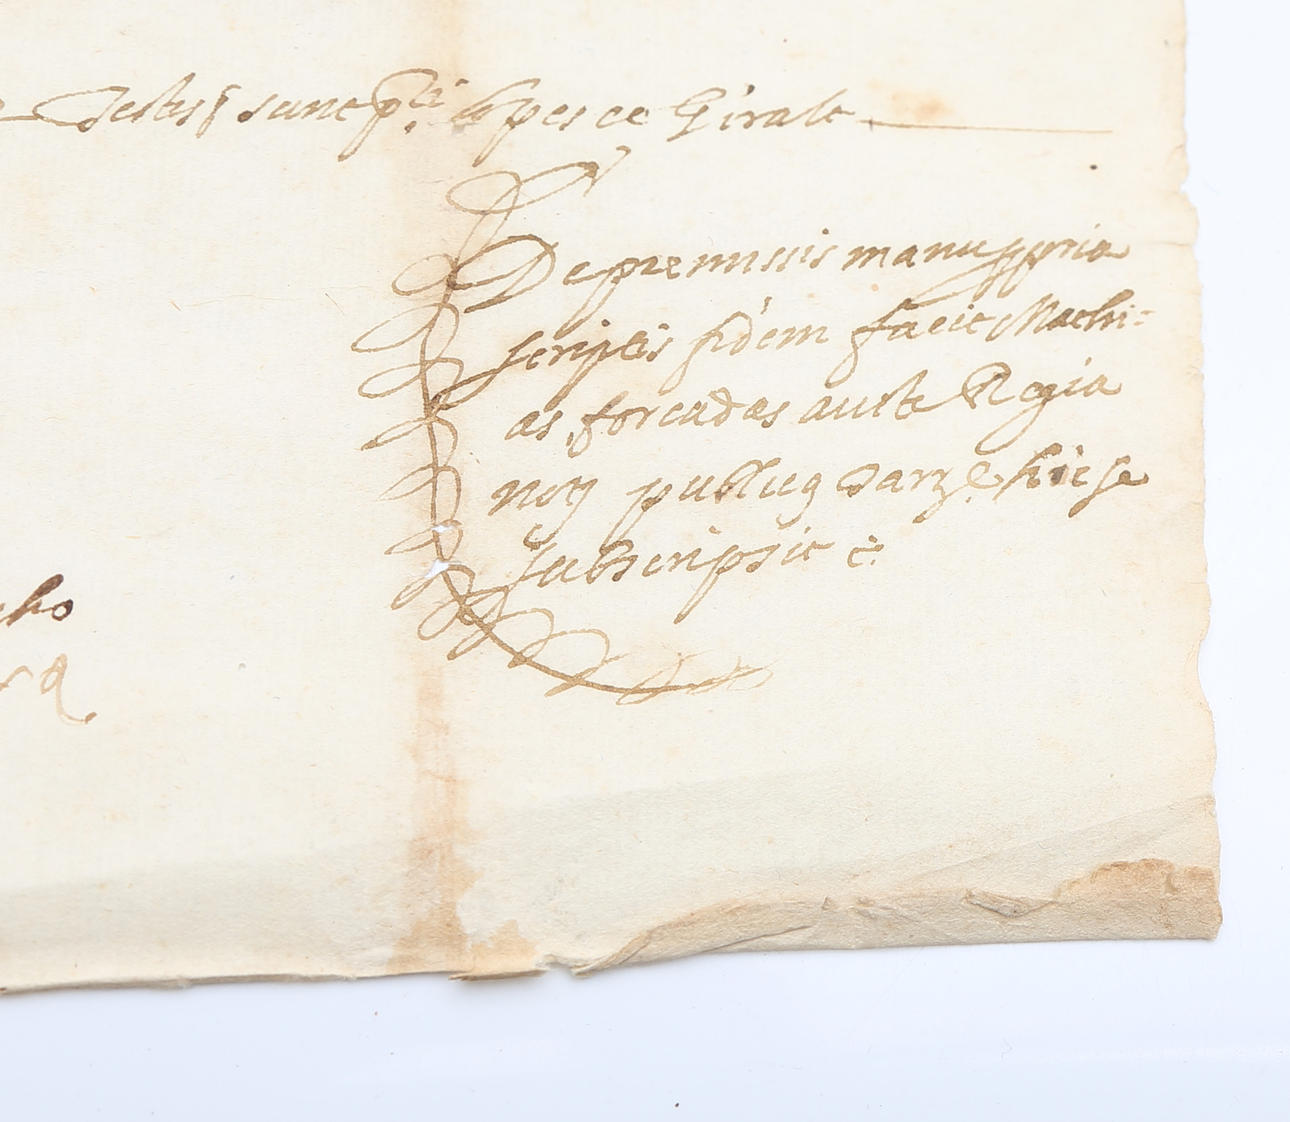 Testes sunt p.ti Lopes et Giralt
De premissis manu ppria
scriptis fidem facit Mathi=
as forcadas aucte Regia
noty publicq Darz. hic se
subscripsit &.